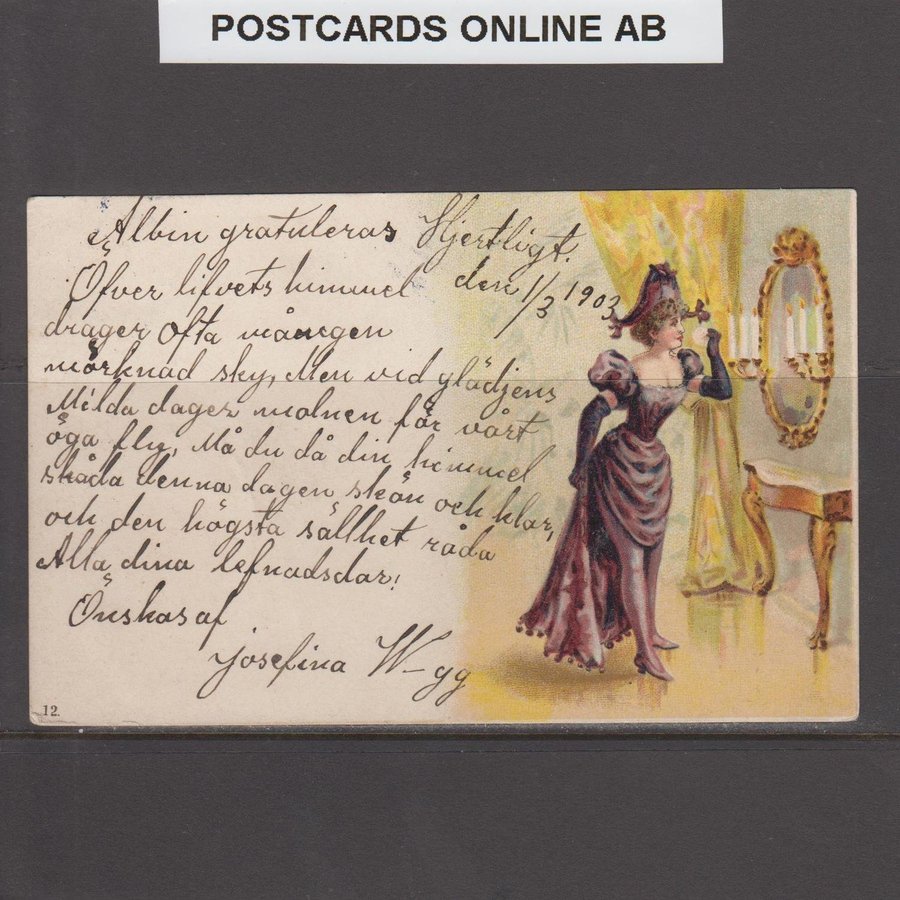 POSTCARDS ONLINE AB
Albin gratuleras Hjertligt.
den 1/3 1903
Öfver lifvets himmel
drager ofta mången
mörknad sky, Men vid glädjens
Milda dager molnen för vårt
öga fly, Må du då din himmel
skåda denna dagen skön och klar,
och den högsta sällhet råda
Alla dina lefnadsdar!
Önskas af
Josefina W-gg
12.